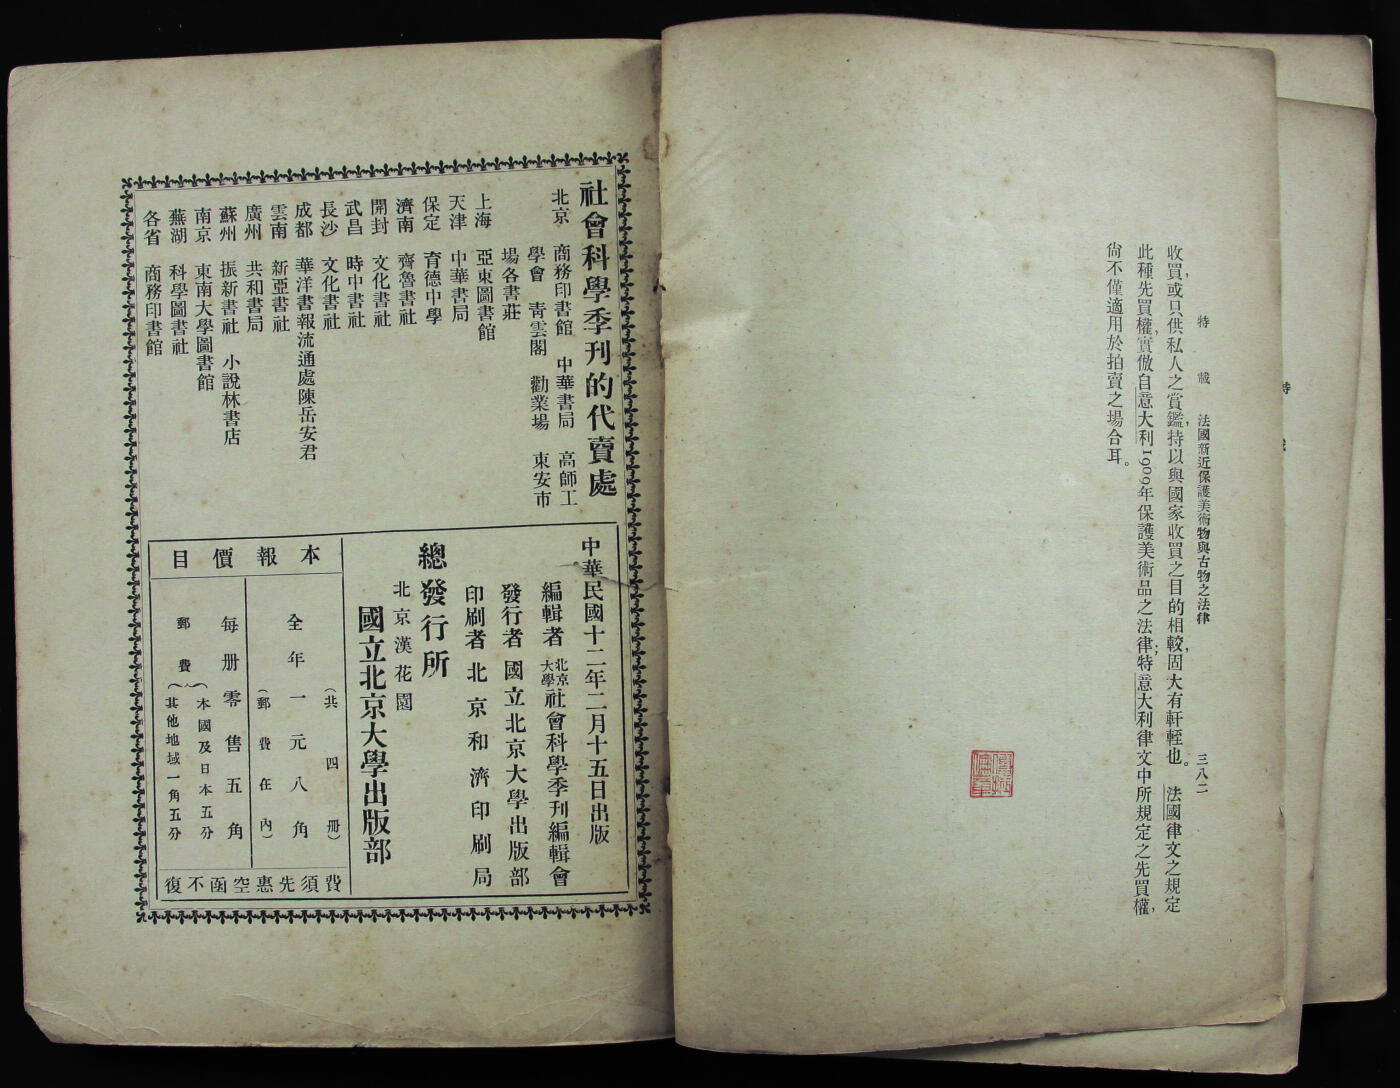 特載　法國新近保護美術物與古物之法律　三八二
收買，或只供私人之賞鑑，持以與國家收買之目的相較，固大有軒輊也。法國律文之規定
此種先買權，實倣自意大利1909年保護美術品之法律；特意大利律文中所規定之先買權，
尙不僅適用於拍賣之場合耳。
社會科學季刊的代賣處
北京　商務印書館　中華書局　高師工
學會　靑雲閣　勸業場　東安市
場各書莊
上海　亞東圖書館
天津　中華書局
保定　育德中學
濟南　齊魯書社
開封　文化書社
武昌　時中書社
長沙　文化書社
成都　華洋書報流通處陳岳安君
雲南　新亞書社
廣州　共和書局
蘇州　振新書社　小說林書店
南京　東南大學圖書館
蕪湖　科學圖書社
各省　商務印書館
中華民國十二年二月十五日出版
編輯者　北京大學社會科學季刊編輯會
發行者　國立北京大學出版部
印刷者　北京和濟印刷局
總發行所
北京漢花園
國立北京大學出版部
本報價目
全年一元八角
（共四冊）
（郵費在內）
每册零售五角
郵費
本國及日本五分
其他地域一角五分
費須先惠空函不復
特